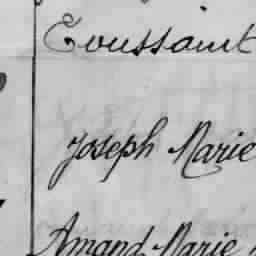 Toussaint
Joseph Marie
Amand Marie